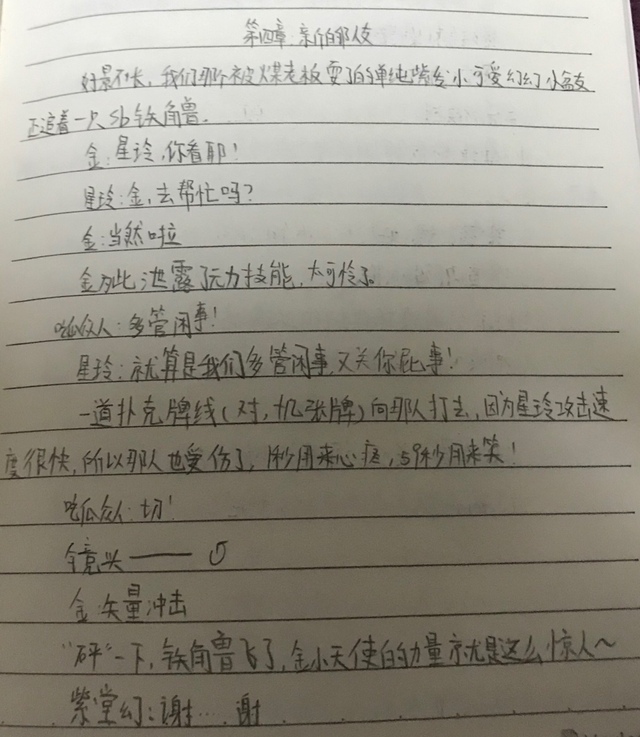 第四章 新的朋友
好景不长,我们那个被煤老板耍了的单纯嘴贪小可爱幻幻小盆友
正追着一只sb铁角兽.
金:星玲,你看耶!
星玲:金,去帮忙吗?
金:当然啦
金为此泄露了元力技能,太可怜了。
吃瓜众人:多管闲事!
星玲:就算是我们多管闲事,又关你屁事!
一道扑克牌线(对,十几张牌)向那人打去,因为星玲攻击速
度很快,所以那人也受伤了,1秒用来心疼,59秒用来笑!
吃瓜众人:切!
镜头——
金:矢量冲击
"砰"一下,铁角兽飞了,金小天使的力量就是这么惊人~
紫堂幻:谢……谢